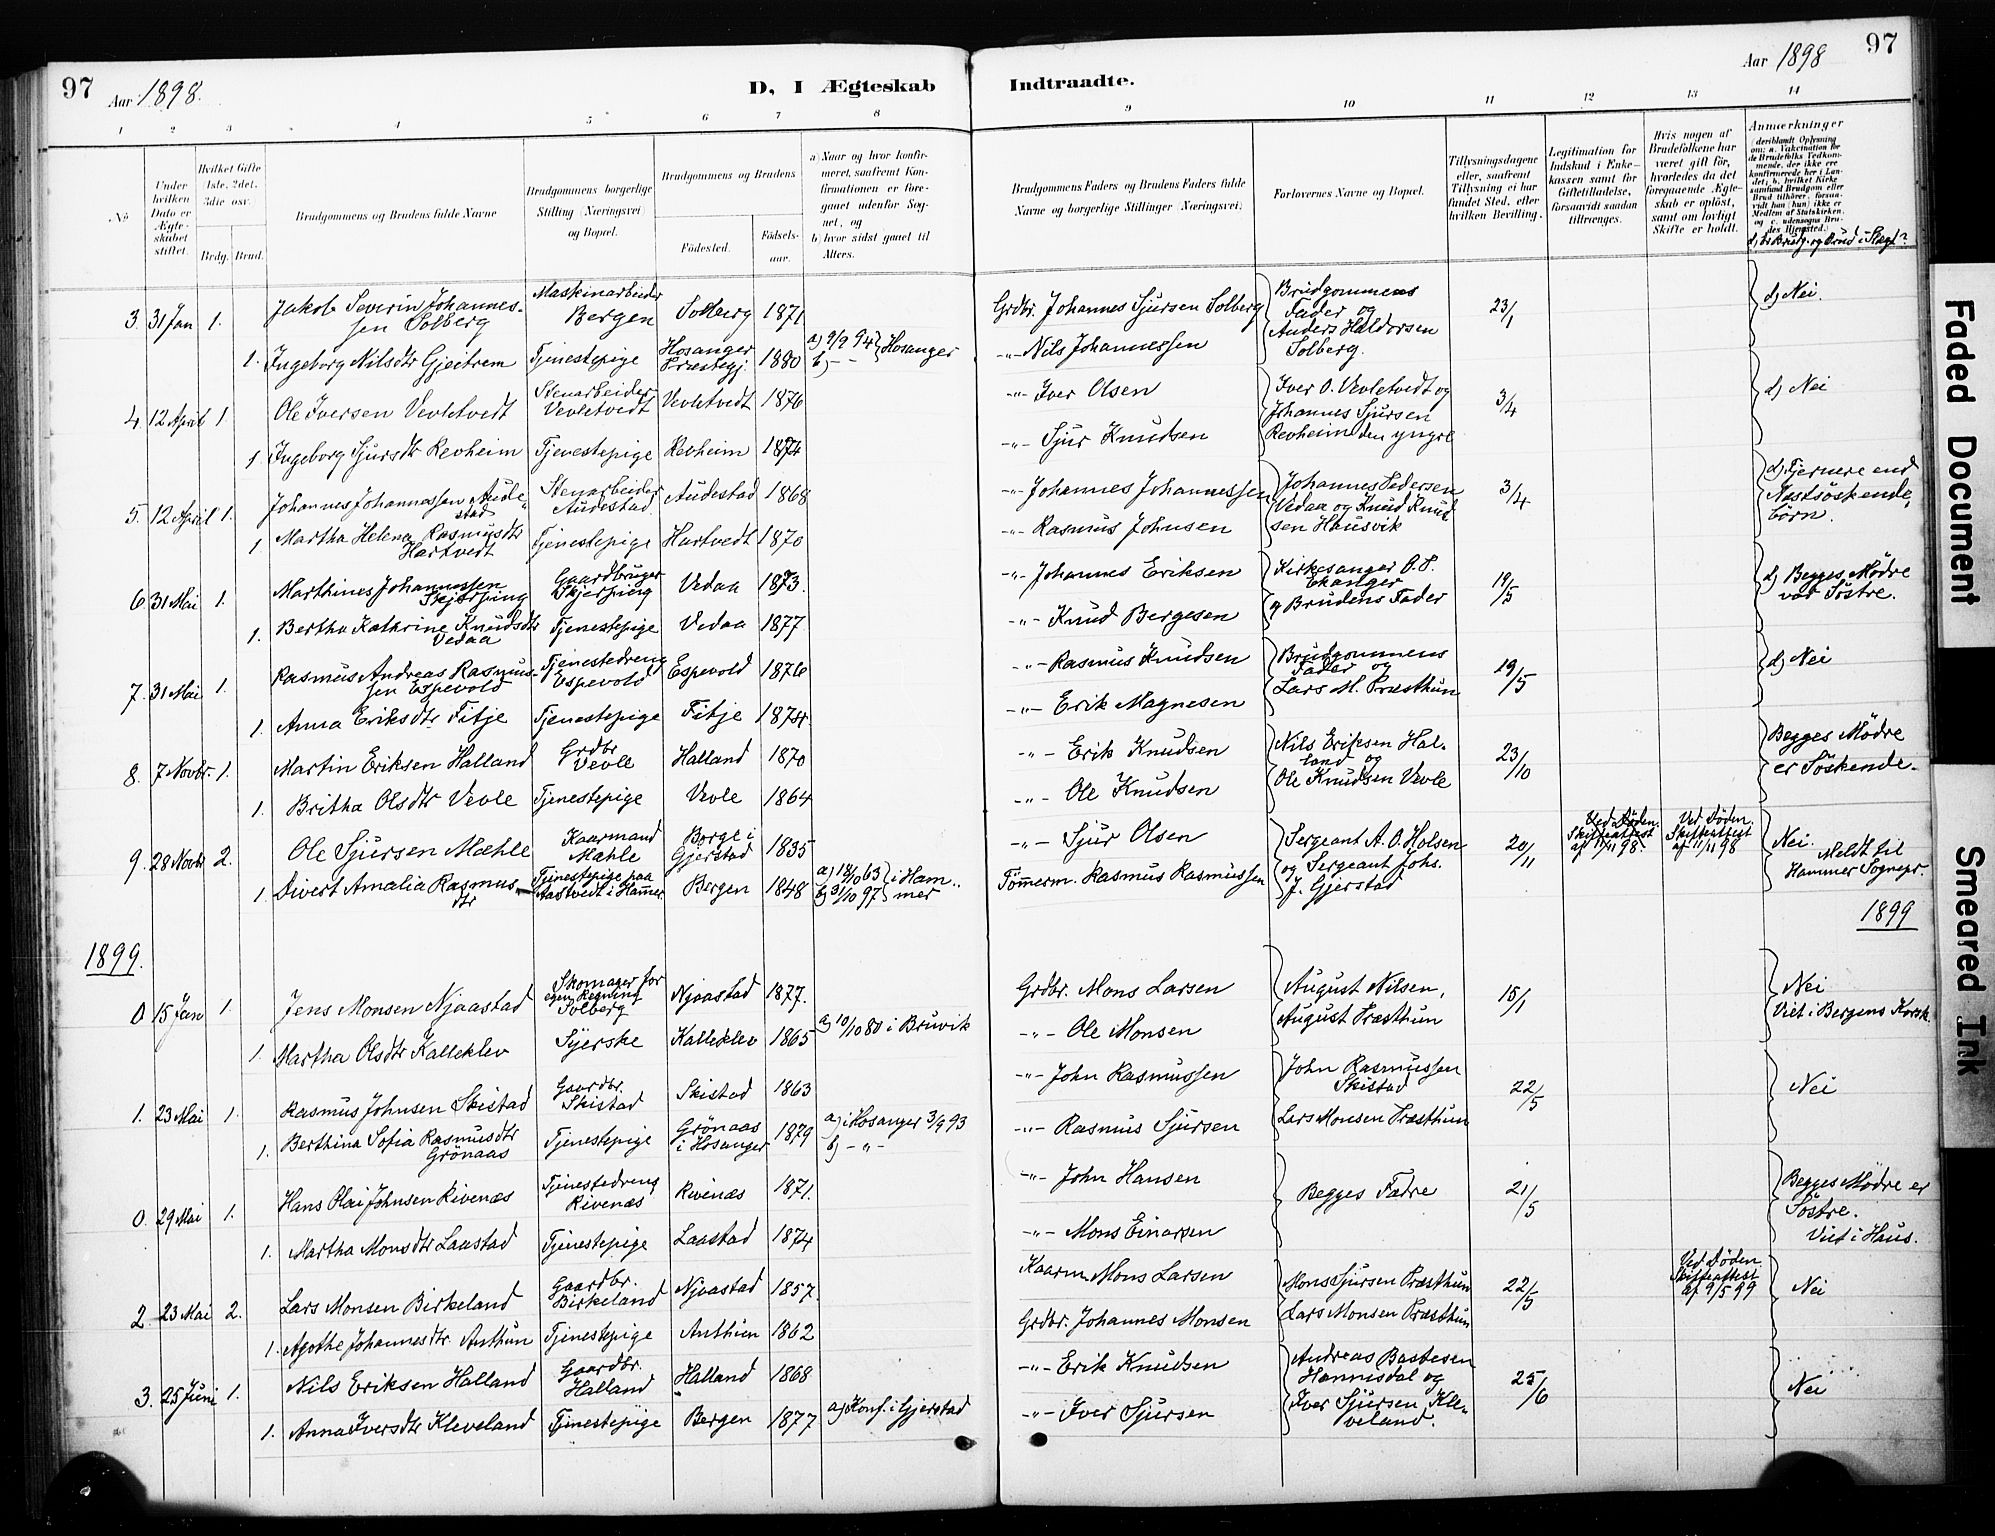 97 Aar 1898. D, I Ægteskab Indtraadte. Aar 1898 97
1 2 3 4 5 6 7 8 9 10 11 12 13 14
No
Under hvilken Dato er Ægteskabet stiftet.
Hvilket Gifte (1ste, 2det, 3die osv.)
Brdg. Brud.
Brudgommens og Brudens fulde Navne
Brudgommens borgerlige Stilling (Næringsvei) og Bopæl.
Brudgommens og Brudens
Fødested. Fødselsaar.
a) Naar og hvor konfirmeret, saafremt Konfirmationen er foregaaet udenfor Sognet, og
b) hvor sidst gaaet til Alters.
Brudgommens Faders og Brudens Faders fulde Navne og borgerlige Stillinger (Næringsvei)
Forlovernes Navne og Bopæl.
Tillysningsdagene eller, saafremt Tillysning ei har fundet Sted, efter hvilken Bevilling.
Legitimation for Indskud i Enkekassen samt for Giftetilladelse, forsaavidt saadan tiltrænges.
Hvis nogen af Brudefolkene har været gift før, hvorledes da det foregaaende Ægteskab er opløst, samt om lovligt Skifte er holdt.
Anmærkninger
(deriblandt Oplysning om: a. Vakcination for de Brudefolks Vedkommende, der ikke ere konfirmerede her i Landet; b. hvilket Kirkesamfund Brudgom eller Brud tilhører, forsaavidt han (hun) ikke er Medlem af Statskirken, og c. udensogns Brudes Hjemsted.)
d) Er Brudg. og Brud i Slægt?
3. 31 Jan 1. Jakob Severin Johannessen Solberg Maskinarbeider Bergen Solberg 1871 Grdbr. Johannes Sjursen Solberg Brudgommens Fader og Anders Haldorsen Solberg. 23/1 d) Nei.
1. Ingeborg Nilsdtr Gjeitrem Tjenestepige Hosanger Præstegj. 1880 a) 9/9 94 b) - - Hosanger -"- Nils Johannessen
4. 12 April 1. Ole Iversen Vevletvedt Stenarbeider Vevletvedt Vevletvedt 1876 -"- Iver Olsen Iver O. Vevletvedt og Johannes Sjursen Revheim den yngre 3/4 d) Nei
1 Ingeborg Sjursdtr Revheim Tjenestepige Revheim 1874 -"- Sjur Knudsen
5. 12 April 1. Johannes Johannessen Audestad Stenarbeider Audestad Audestad 1868 -"- Johannes Johannessen Johannes Pedersen Vedaa og Knud Knudsen Hausvik 3/4 d) Fjernere end Næstsöskendebörn.
1 Martha Helena Rasmusdtr Hartvedt Tjenestepige Hartvedt 1870 -"- Rasmus Johnsen
6. 31 Mai 1. Marthines Johannessen Skjerping Gaardbruger Skjerping Vedaa 1873. -"- Johannes Eriksen Kirkesanger O. P. Ekanger og Brudens Fader 19/5 d) Begges Mødre var Söstre.
1. Bertha Kathrine Knudsdtr Vedaa Tjenestepige Vedaa 1877 -"- Knud Bergesen
7. 31 Mai 1. Rasmus Andreas Rasmussen Espevold Tjenestedreng Espevold Espevold 1876 -"- Rasmus Knudsen Brudgommens Fader og Lars M. Præsthun 19/5 d) Nei
1. Anna Eriksdtr Fitje Tjenestepige Fitje 1874. -"- Erik Magnesen
8. 7 Novbr. 1. Martin Eriksen Halland Grdbr Vevle Halland 1870 -"- Erik Knudsen Nils Eriksen Halland og Ole Knudsen Vevle 23/10 Begges Mødre er Söskende.
1. Britha Olsdtr Vevle Tjenestepige Vevle 1864 -"- Ole Knudsen
9. 28 Novbr 2. Ole Sjursen Mæhle Kaarmand Mæhle Borge i Gjerstad 1835 -"- Sjur Olsen Sergeant A. O. Holsen og Sergeant Johs. J. Gjerstad 20/11 Ved Döden. Skifteattest af 11/11 98. Ved Döden. Skifteattest af 11/11 98 Nei. Meldt til Hammer Sognepr.
1. Divert Amalia Rasmusdtr Tjenestepige paa Aastvedt i Hamer. Bergen 1848 a) 18/10 63 b) 31/10 97 i Hammer Tömmerm. Rasmus Rasmussen
1899. 1899
0 15 Jan 1. Jens Monsen Njaastad Skomager for egen Regning Solberg Njaastad 1877. Grdbr. Mons Larsen August Nilsen, August Præsthun 15/1 Nei Viet i Bergens Korsk.
1. Martha Olsdtr Kalleklev Syerske Kalleklev 1865 a) 10/10 80 i Bruvik -"- Ole Monsen
1. 23 Mai 1. Rasmus Johnsen Skistad Gaardbr. Skistad Skistad 1863 -"- John Rasmussen John Rasmussen Skistad Lars Monsen Præsthun 22/5 Nei
1. Berthina Sofia Rasmusdtr Grönaas Tjenestepige Grönaas i Hosanger 1879 a) i Hosanger 3/9 93 b) - " - -"- Rasmus Sjursen
0. 29 Mai 1. Hans Olai Johnsen Rivenæs Tjenestedreng Rivenæs Rivenæs 1871. -"- John Hansen Begges Fædre 21/5 Begges Mødre er Söstre. Viet i Haus.
1. Martha Monsdtr Laastad Tjenestepige Laastad 1874 -"- Mons Einarsen
2 23 Mai 2. Lars Monsen Birkeland Gaardbr. Birkeland Njaastad 1857. Kaarm. Mons Larsen Mons Sjursen Præsthun Lars Monsen Præsthun 22/5 Ved Döden Skifteattest af 9/5 99 Nei
1. Agothe Johannesdtr. Anthun Tjenestepige Anthun 1862 Grdbr. Johannes Monsen
3. 25 Juni 1. Nils Eriksen Halland Gaardbr. Halland Halland 1868 -"- Erik Knudsen Andreas Bastesen Hannisdal og Iver Sjursen Kleveland. 25/6 Nei
1. Anna Iversdtr Kleveland Tjenestepige Bergen 1877 a) Konf. i Gjerstad -"- Iver Sjursen
Faded Document
Smeared Ink